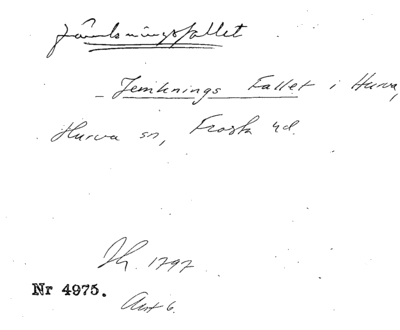 Jämkningsfallet
– Jemknings Fallet i Hurva,
Hurva sn, Frosta hd.
Th. 1797.
Nr 4975.
Akt 6.